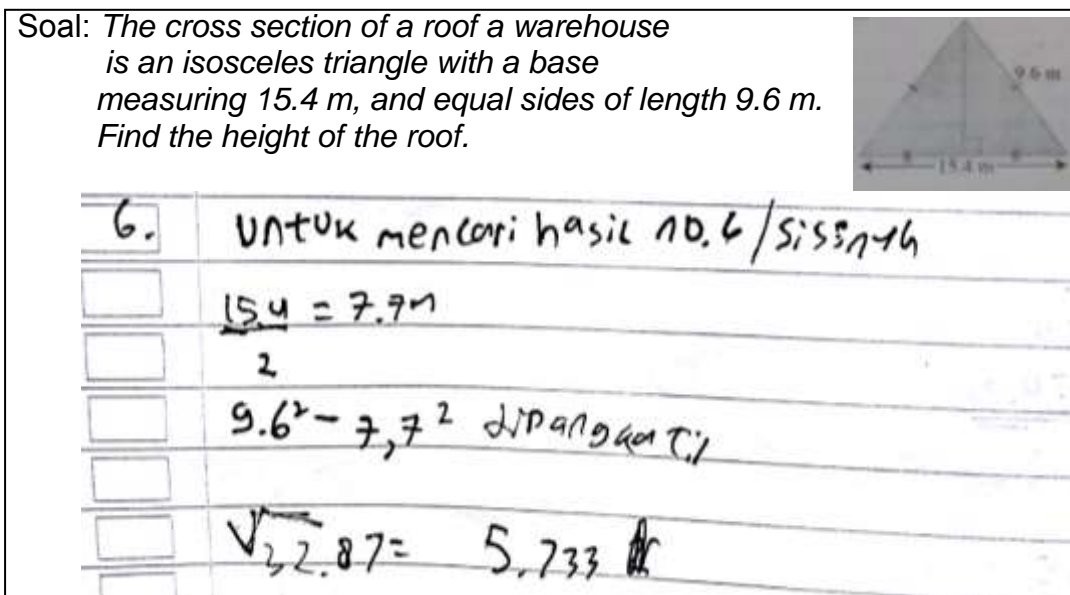 Soal: The cross section of a roof a warehouse
is an isosceles triangle with a base
measuring 15.4 m, and equal sides of length 9.6 m.
Find the height of the roof.
9.6 m
15.4 m
6. Untuk mencari hasil no.6/
15.4 = 7.7m
2
9.6² - 7,7²
√32.87= 5.733